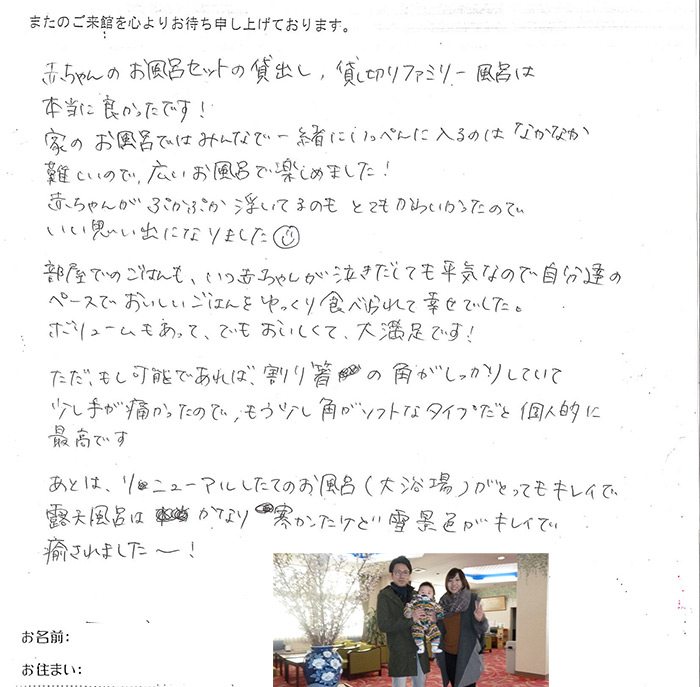 またのご来館を心よりお待ち申し上げております。
赤ちゃんのお風呂セットの貸出し, 貸し切りファミリー風呂は
本当に良かったです!
家のお風呂ではみんなで一緒にいっぺんに入るのはなかなか
難しいので, 広いお風呂で楽しめました!
赤ちゃんがぷかぷか浮いてるのもとてもかわいかったので
いい思い出になりました
部屋でのごはんも、いつ赤ちゃんが泣きだしても平気なので自分達の
ペースでおいしいごはんをゆっくり食べられて幸せでした。
ボリュームもあって、でもおいしくて、大満足です!
ただ、もし可能であれば、割り箸の角がしっかりしていて
少し手が痛かったので, もう少し角がソフトなタイプだと個人的に
最高です
あとは、リニューアルしたてのお風呂(大浴場)がとってもキレイで
露天風呂はかなり寒かったけど雪景色がキレイで
癒されました〜!
お名前:
お住まい: